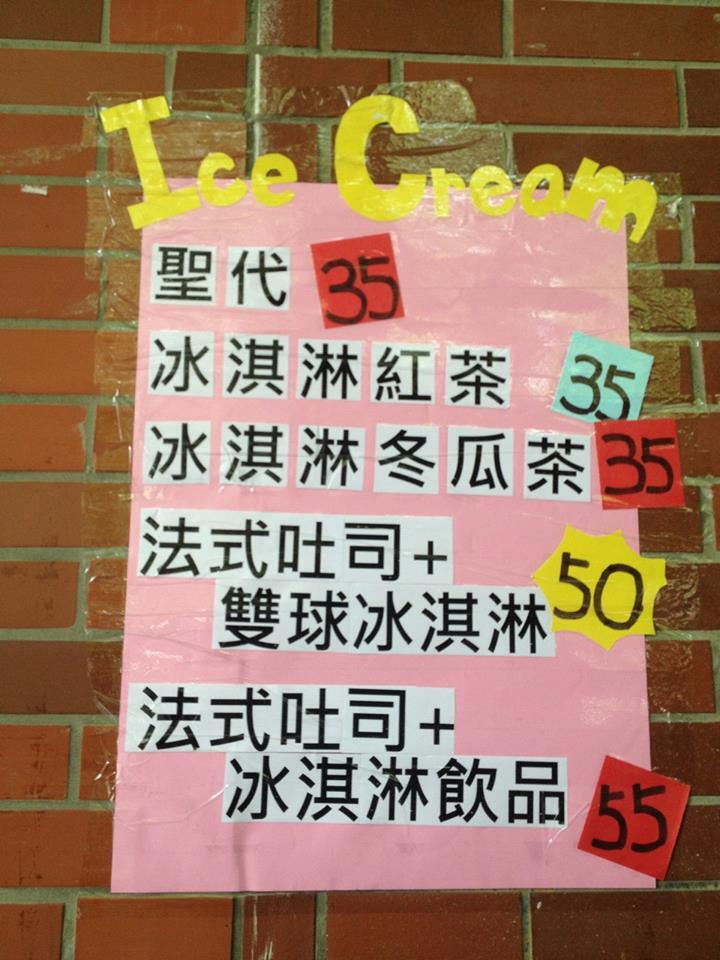 Ice Cream
聖代 35
冰淇淋紅茶 35
冰淇淋冬瓜茶 35
法式吐司+
雙球冰淇淋 50
法式吐司+
冰淇淋飲品 55